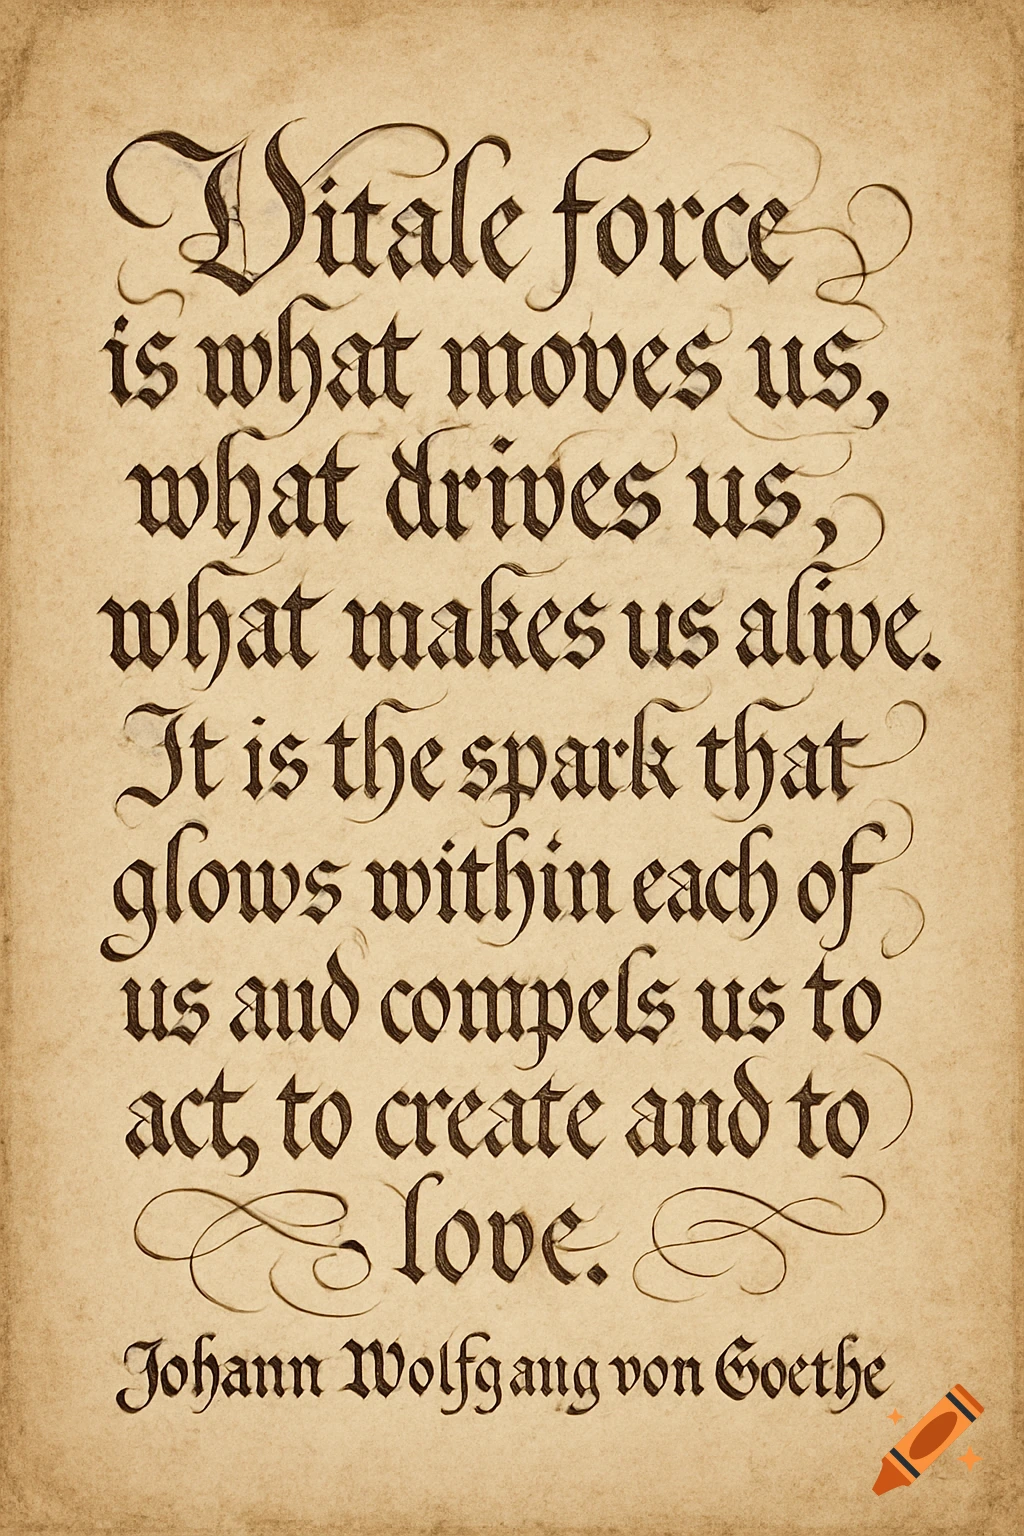 Vitale force
is what moves us,
what drives us,
what makes us alive.
It is the spark that
glows within each of
us and compels us to
act, to create and to
love.
Johann Wolfgang von Goethe